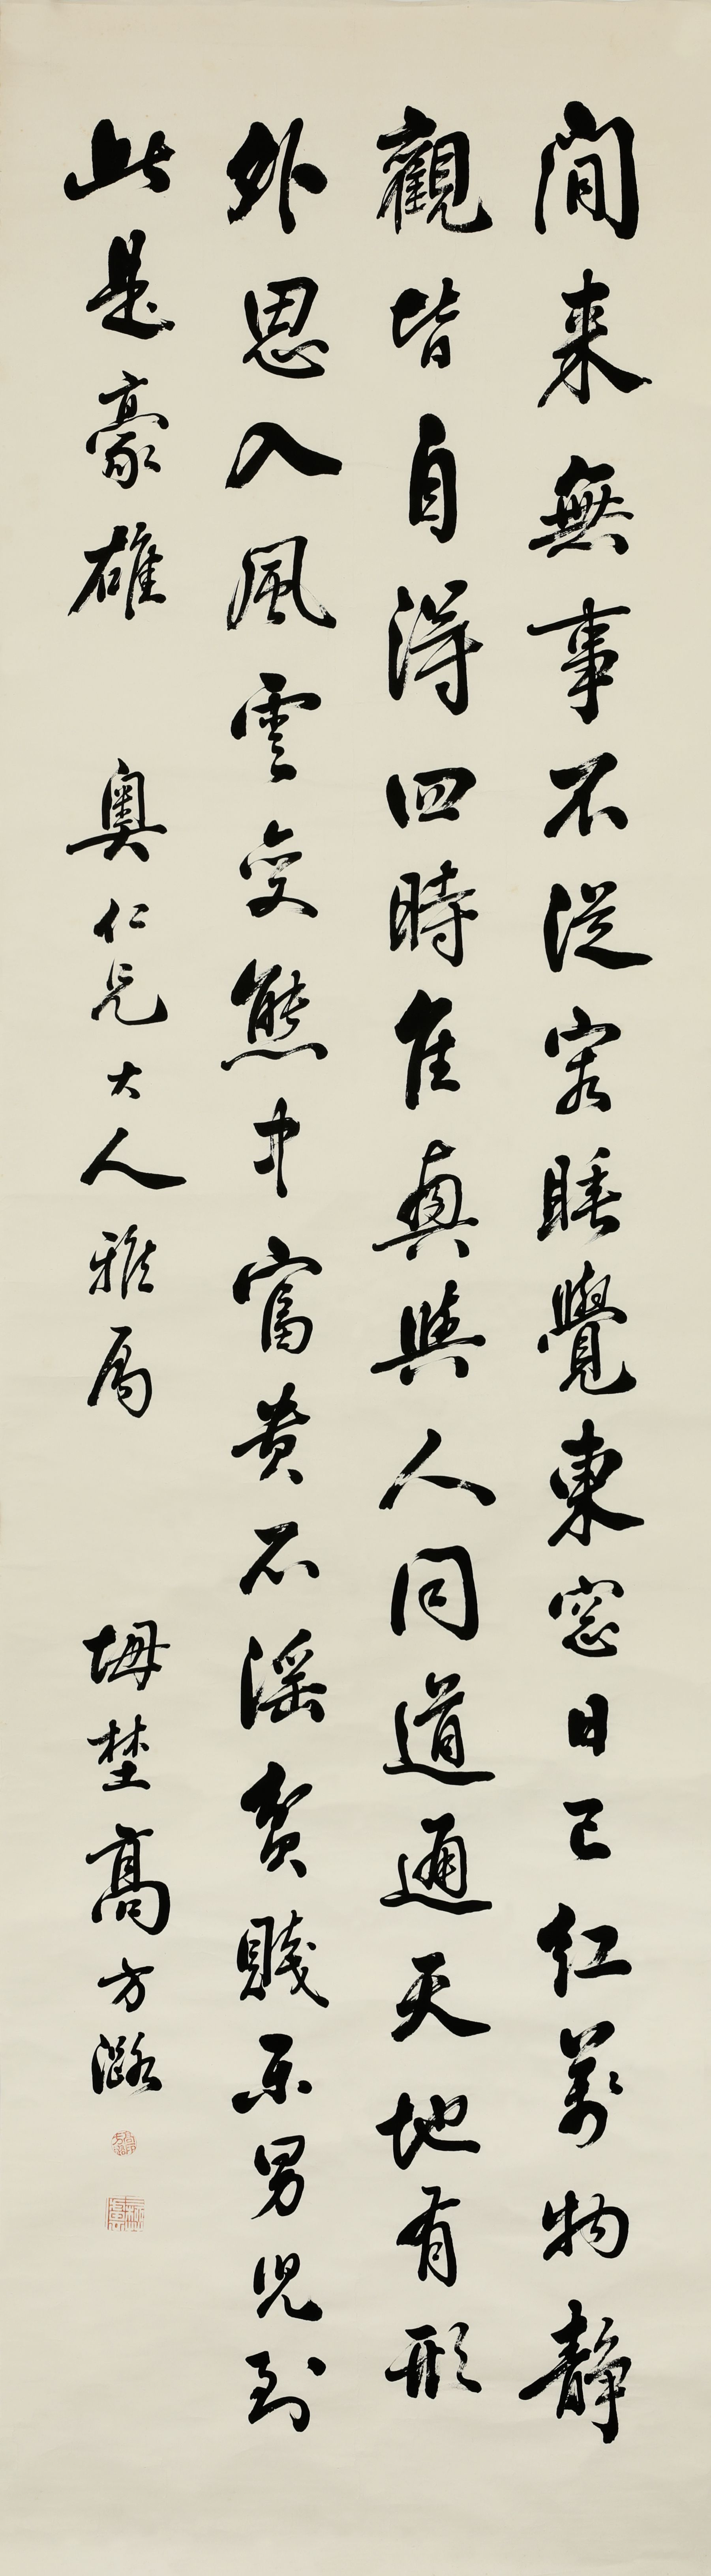 閒来無事不從容睡覺東窓日已紅萬物靜
觀皆自得四時佳興與人同道通天地有形
外思入風雲变態中富貴不淫貧賤樂男児到
此是豪雄 奥仁兄大人雅屬 坶埜高方潞